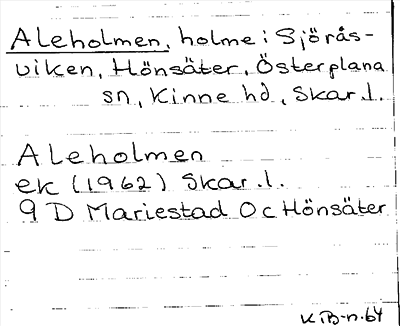 Aleholmen, holme i Sjörås-
viken, Hönsäter, Österplana
sn, Kinne hd, Skar.l.
Aleholmen
ek (1962) Skar.l.
9 D Mariestad 0c Hönsäter
K.B-n.64